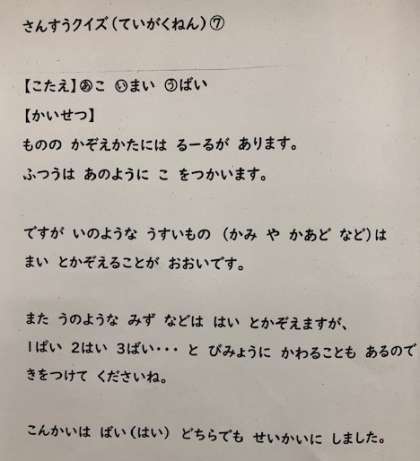 さんすうクイズ(ていがくねん)⑦
【こたえ】㋐こ ㋑まい ㋒ばい
【かいせつ】
ものの かぞえかたには るーるが あります。
ふつうは あのように こ をつかいます。
ですが いのような うすいもの (かみ や かあど など)は
まい とかぞえることが おおいです。
また うのような みず などは はい とかぞえますが、
1ぱい 2はい 3ばい・・・ と びみょうに かわることも あるので
きをつけて くださいね。
こんかいは ばい(はい) どちらでも せいかいに しました。